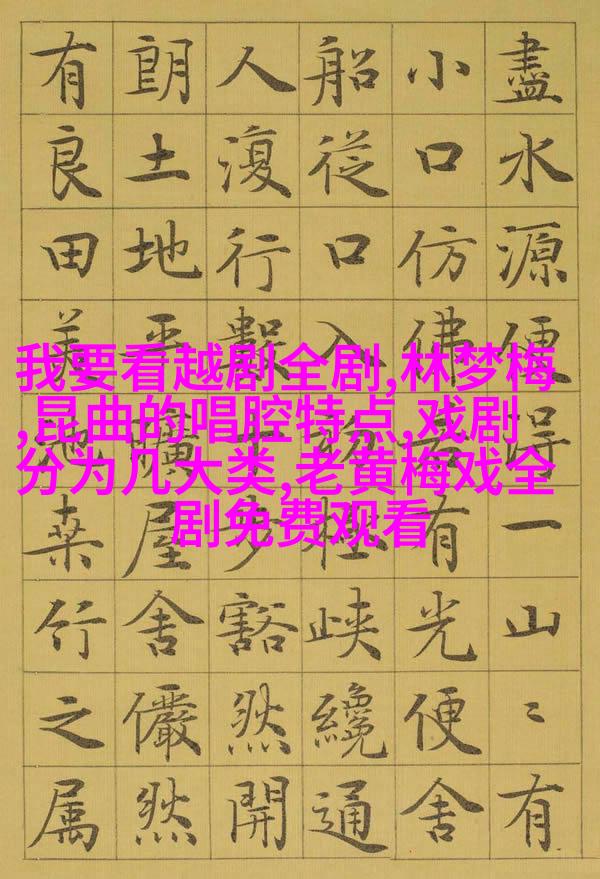 盡水源便得一山〻有
小口仿佛若有光便舍
船從口入初極峽纔通
人復行數十步豁然開
朗土地平曠屋舍儼然
有良田美池桑竹之属
我要看越剧全剧,林梦梅
,昆曲的唱腔特点,戏剧
分为几大类,老黄梅戏全
剧免费观看